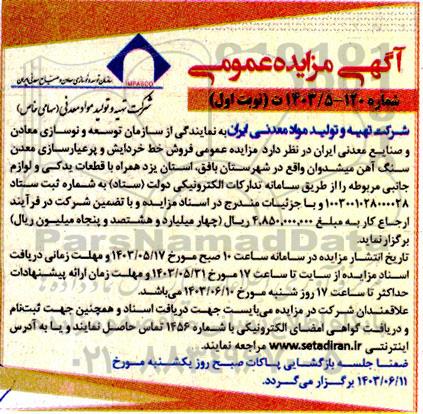 آگهی مزایده عمومی
شماره ۱۲۰-۱۴۰۳/۵ ت (نوبت اول)
سازمان توسعه و نوسازی معادن و صنایع معدنی ایران
IMPASCO
شرکت تهیه و تولید مواد معدنی (سهامی خاص)
شرکت تهیه و تولید مواد معدنی ایران به نمایندگی از سازمان توسعه و نوسازی معادن
و صنایع معدنی ایران در نظر دارد مزایده عمومی فروش خط خردایش و پرعیارسازی معدن
سنگ آهن میشدوان واقع در شهرستان بافق، استان یزد همراه با قطعات یدکی و لوازم
جانبی مربوطه را از طریق سامانه تدارکات الکترونیکی دولت (ستاد) به شماره ثبت ستاد
و با جزئیات مندرج در اسناد مزایده و با تضمین شرکت در فرآیند
ارجاع کار به مبلغ ۴.۸۵۰.۰۰۰.۰۰۰ ریال (چهار میلیارد و هشتصد و پنجاه میلیون ریال)
برگزار نماید.
تاریخ انتشار مزایده در سامانه ساعت ۱۰ صبح مورخ ۱۴۰۳/۰۵/۱۷ و مهلت زمانی دریافت
اسناد مزایده از سایت تا ساعت ۱۷ مورخ ۱۴۰۳/۰۵/۳۱ و مهلت زمان ارائه پیشنهادات
حداکثر تا ساعت ۱۷ روز شنبه مورخ ۱۴۰۳/۰۶/۱۰ می‌باشد.
علاقمندان شرکت در مزایده می‌بایست جهت دریافت اسناد و همچنین جهت ثبت‌نام
و دریافت گواهی امضای الکترونیکی با شماره ۱۴۵۶ تماس حاصل نمایند و یا به آدرس
اینترنتی www.setadiran.ir مراجعه نمایند.
ضمنا جلسه بازگشایی پاکات صبح روز یکشنبه مورخ
۱۴۰۳/۰۶/۱۱ برگزار می‌گردد.
ParsNamadData